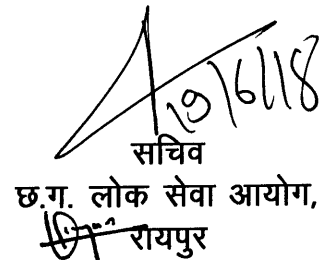 19/6/18
सचिव
छ.ग. लोक सेवा आयोग,
रायपुर